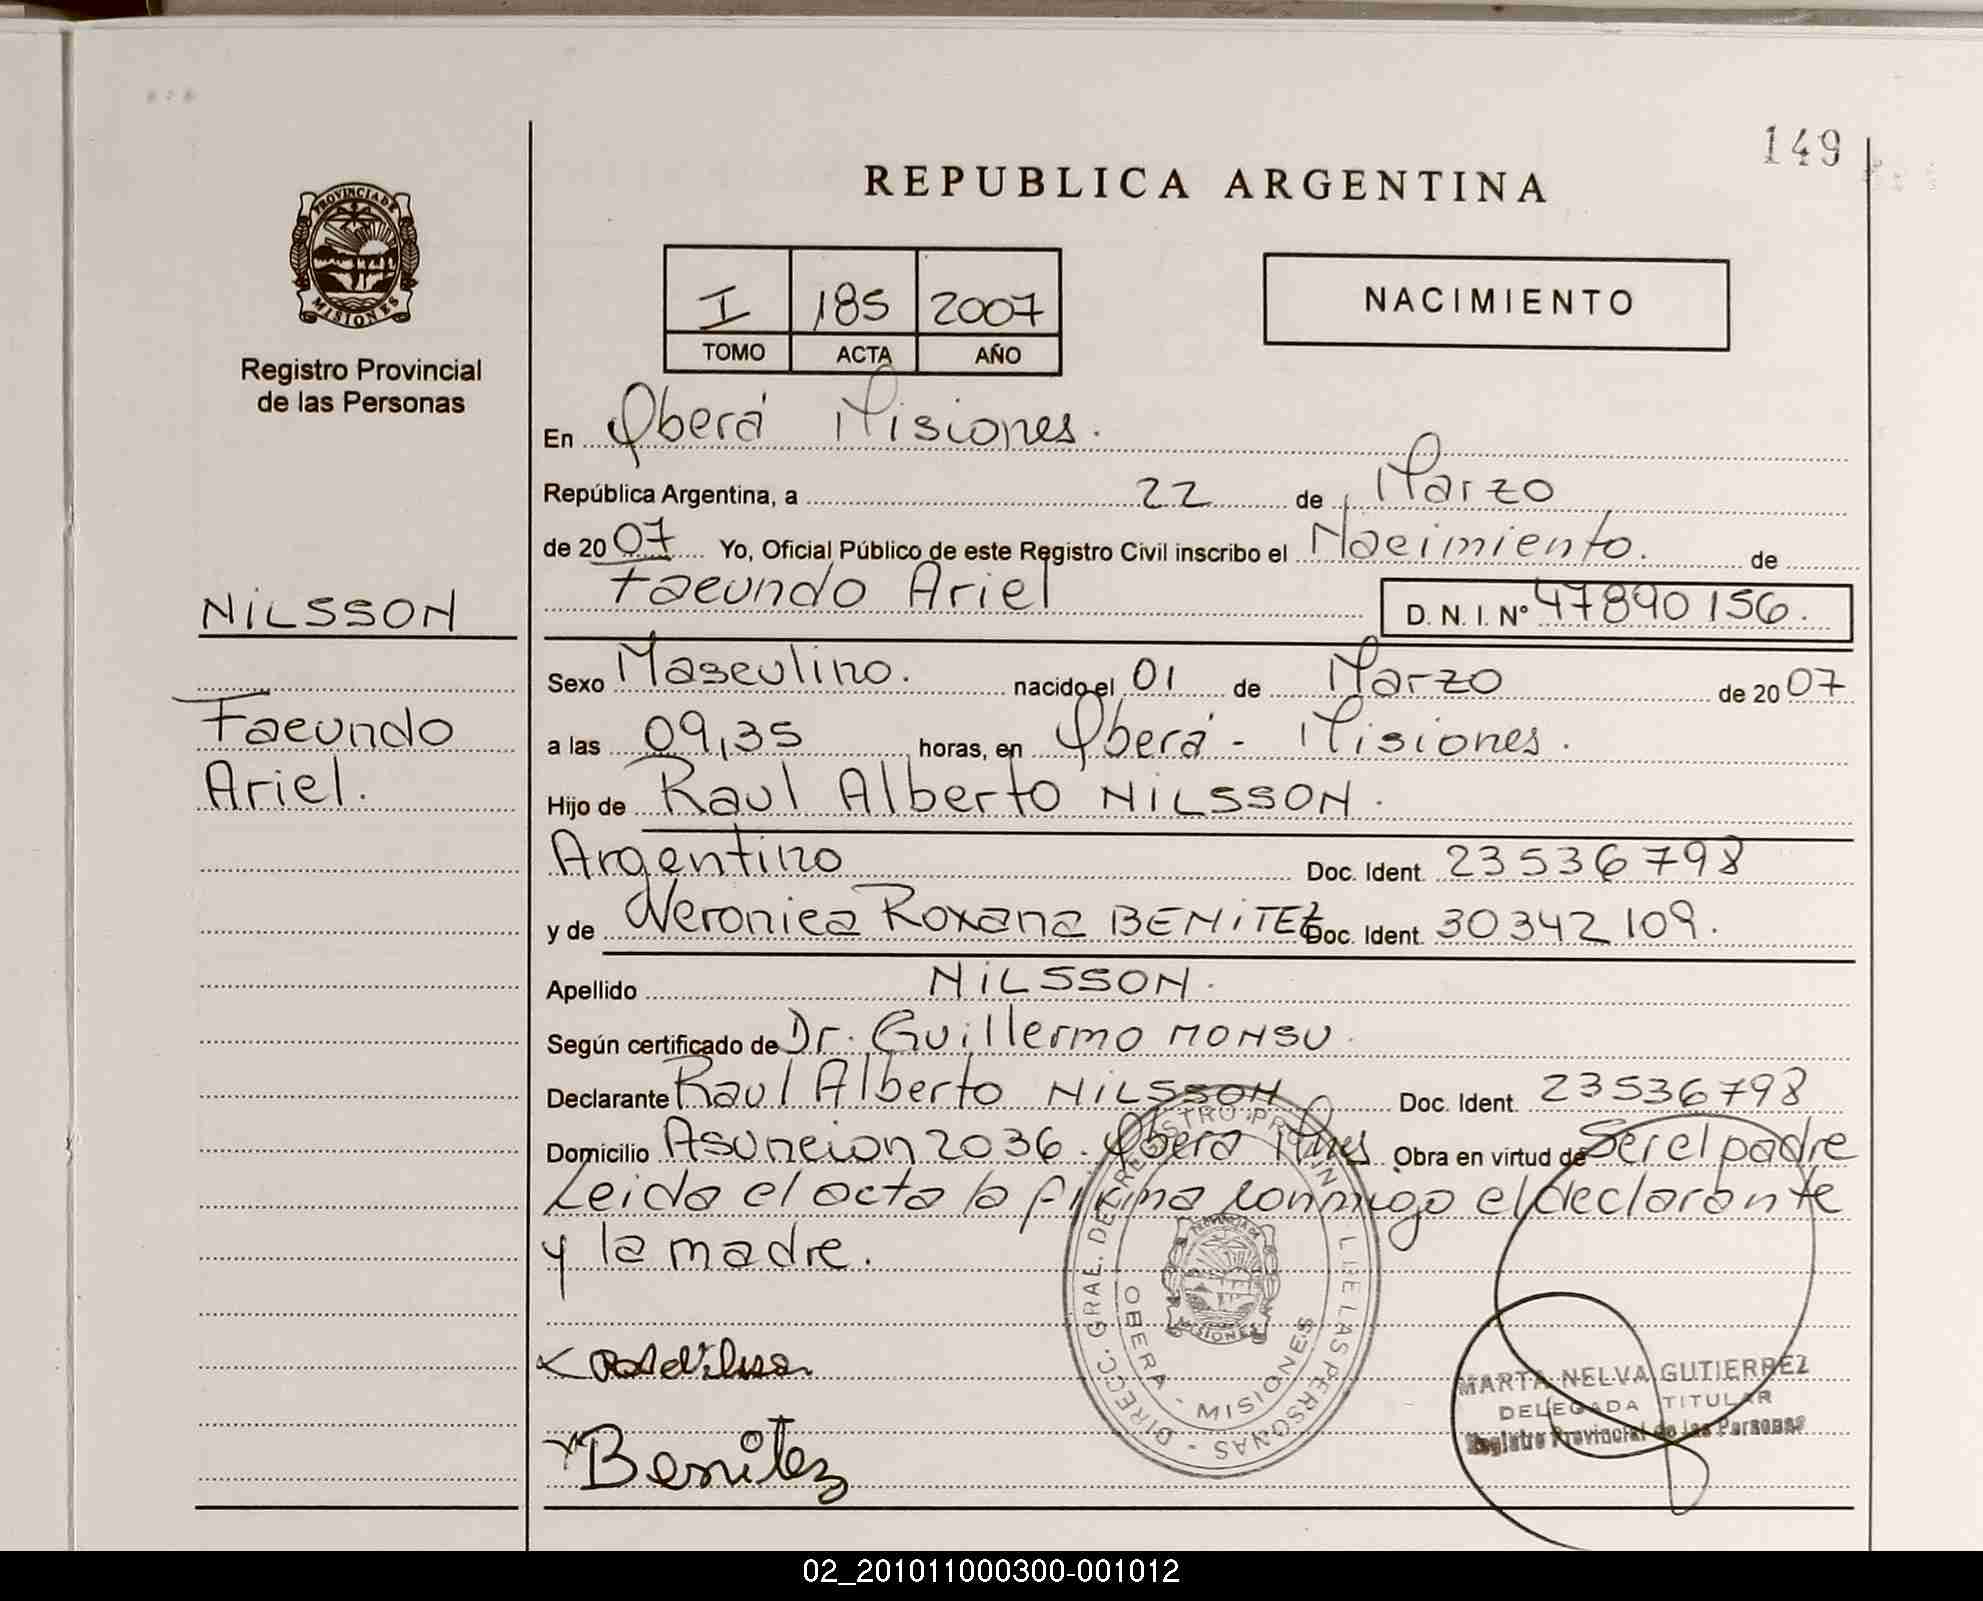 149
REPUBLICA ARGENTINA
PROVINCIA DE
MISIONES
Registro Provincial
de las Personas
I 185 2007
TOMO ACTA AÑO
NACIMIENTO
En Oberá Misiones.
República Argentina, a 22 de Marzo
de 2007 Yo, Oficial Público de este Registro Civil inscribo el Nacimiento. de
Facundo Ariel D. N. I. Nº 47890156.
NiLSSON
Facundo
Ariel.
Sexo Masculino. nacido el 01 de Marzo de 2007
a las 09,35 horas, en Oberá - Misiones.
Hijo de Raul Alberto NiLSSON.
Argentino Doc. Ident. 23536798
y de Veronica Roxana BENiTEZ Doc. Ident. 30342109.
Apellido NiLSSON.
Según certificado de Dr. Guillermo MONSU.
Declarante Raul Alberto NiLSSON Doc. Ident. 23536798
Domicilio Asuncion 2036. Obera Mnes Obra en virtud de Ser el padre
Leida el acta la firma conmigo el declarante
y la madre.
DIRECC. GRAE. DEL REGISTRO PROVIN. DE LAS PERSONAS
OBERA - MISIONES
PROVINCIA DE
MISIONES
Benitez
MARTA NELVA GUTIERREZ
DELEGADA TITULAR
Registro Provincial de las Personas
02_201011000300-001012